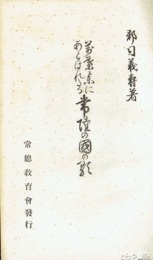 郡司義尋著
萬葉集に
あらはれたる常陸の國の歌
常總教育會發行